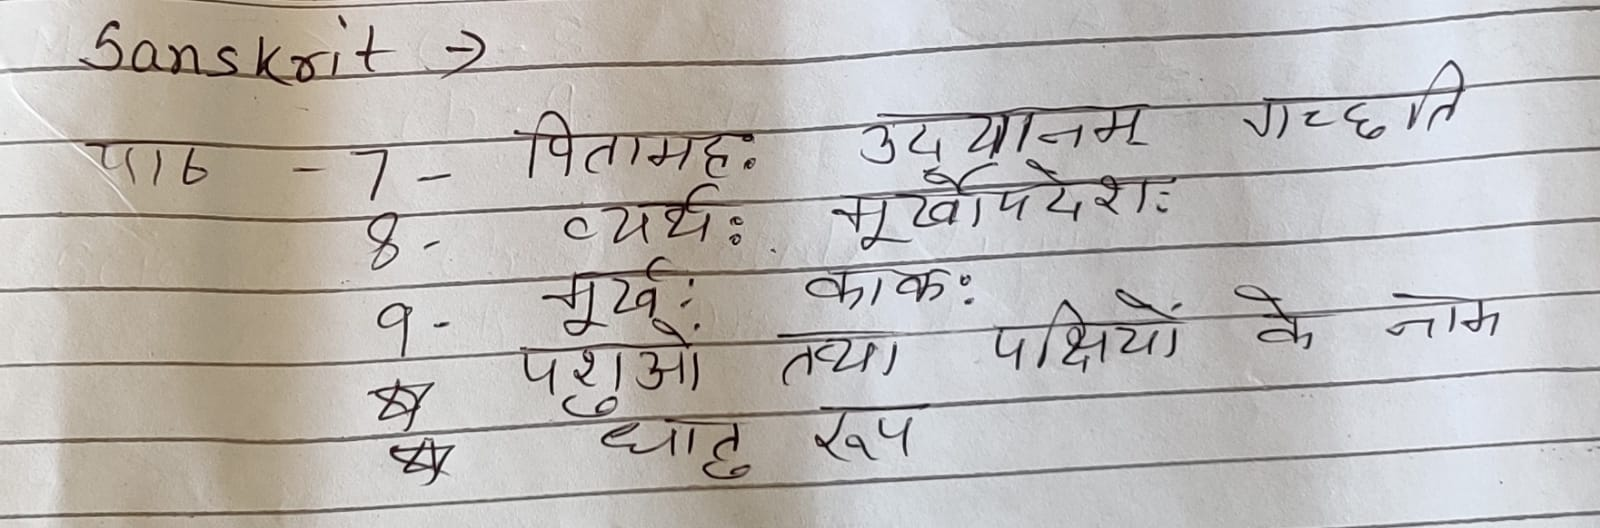 Sanskrit →
पाठ - 7 - पितामहः उद्यानम् गच्छति
8 - व्यर्थः मूर्खोपदेशः
9 - मूर्खः काकः
☆ पशुओं तथा पक्षियों के नाम
☆ धातु रूप